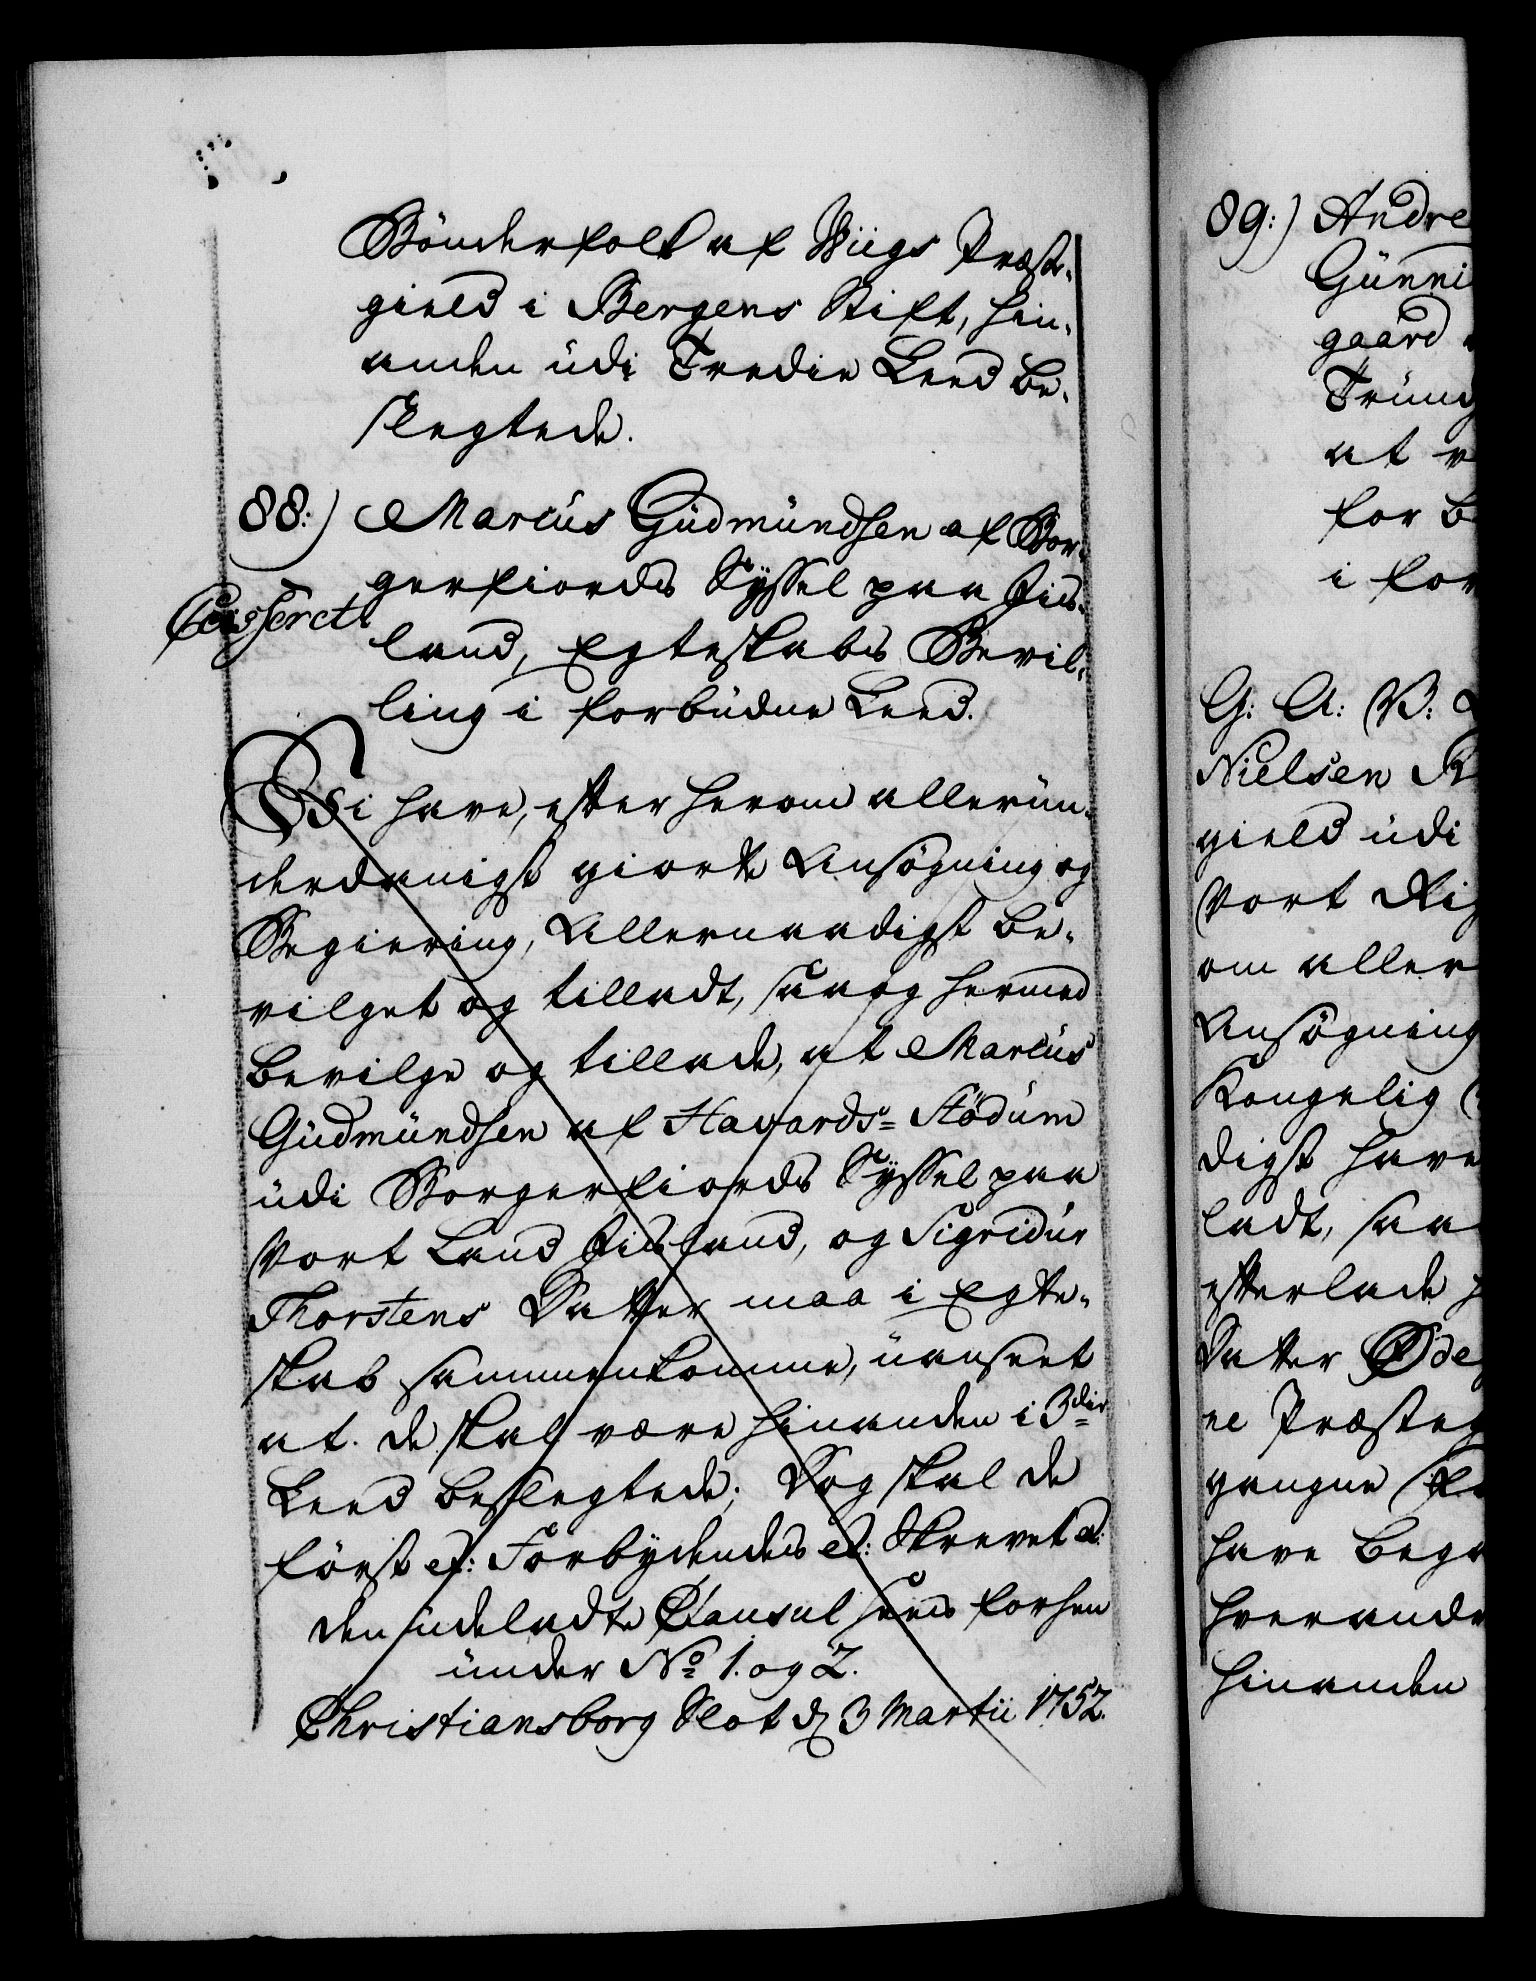 Bönderfolk af Wiigs Præste-
gield i Bergens Stift, hin-
anden üdi Tredie Leed be-
slegtede.
88:) Marcüs Güdmündsen af Bor-
gerfiords Syssel paa Iis-
Casseret
land, Egteskabs Bevil-
ling i forbüdne Leed.
Wi have, efter herom allerün-
derdanigst giorte Ansögning og
Begiering, Allernaadigst be-
vilget og tilladt, saa og hermed
bevilge og tillade, at Marcüs
Güdmündsen af Havards-Stödüm
üdi Borgerfiords Syssel paa
Vort Land Iisland, og Sigridür
Thorstens Datter maa i Egte-
skab sammenkomme, üanseet
at de skal være hinanden i 3die
Leed beslegtede; Dog skal de
först etc: Forbydendes etc: Skrevet etc:
den üdeladte Clausul sees forhen
ünder No 1. og 2.
Christiansborg Slot d. 3 Martii 1752.
89:) Andre
Günni
gaard
Tründ
at
for be
i for
G: A: V:
Nielsen
gield üdi
Vort Rig
om aller
Ansögning
Kongelig
digst have
ladt, saa
efterlade
Datter Öde
ne Præsteg
gangne
have bega
hverandr
hinanden